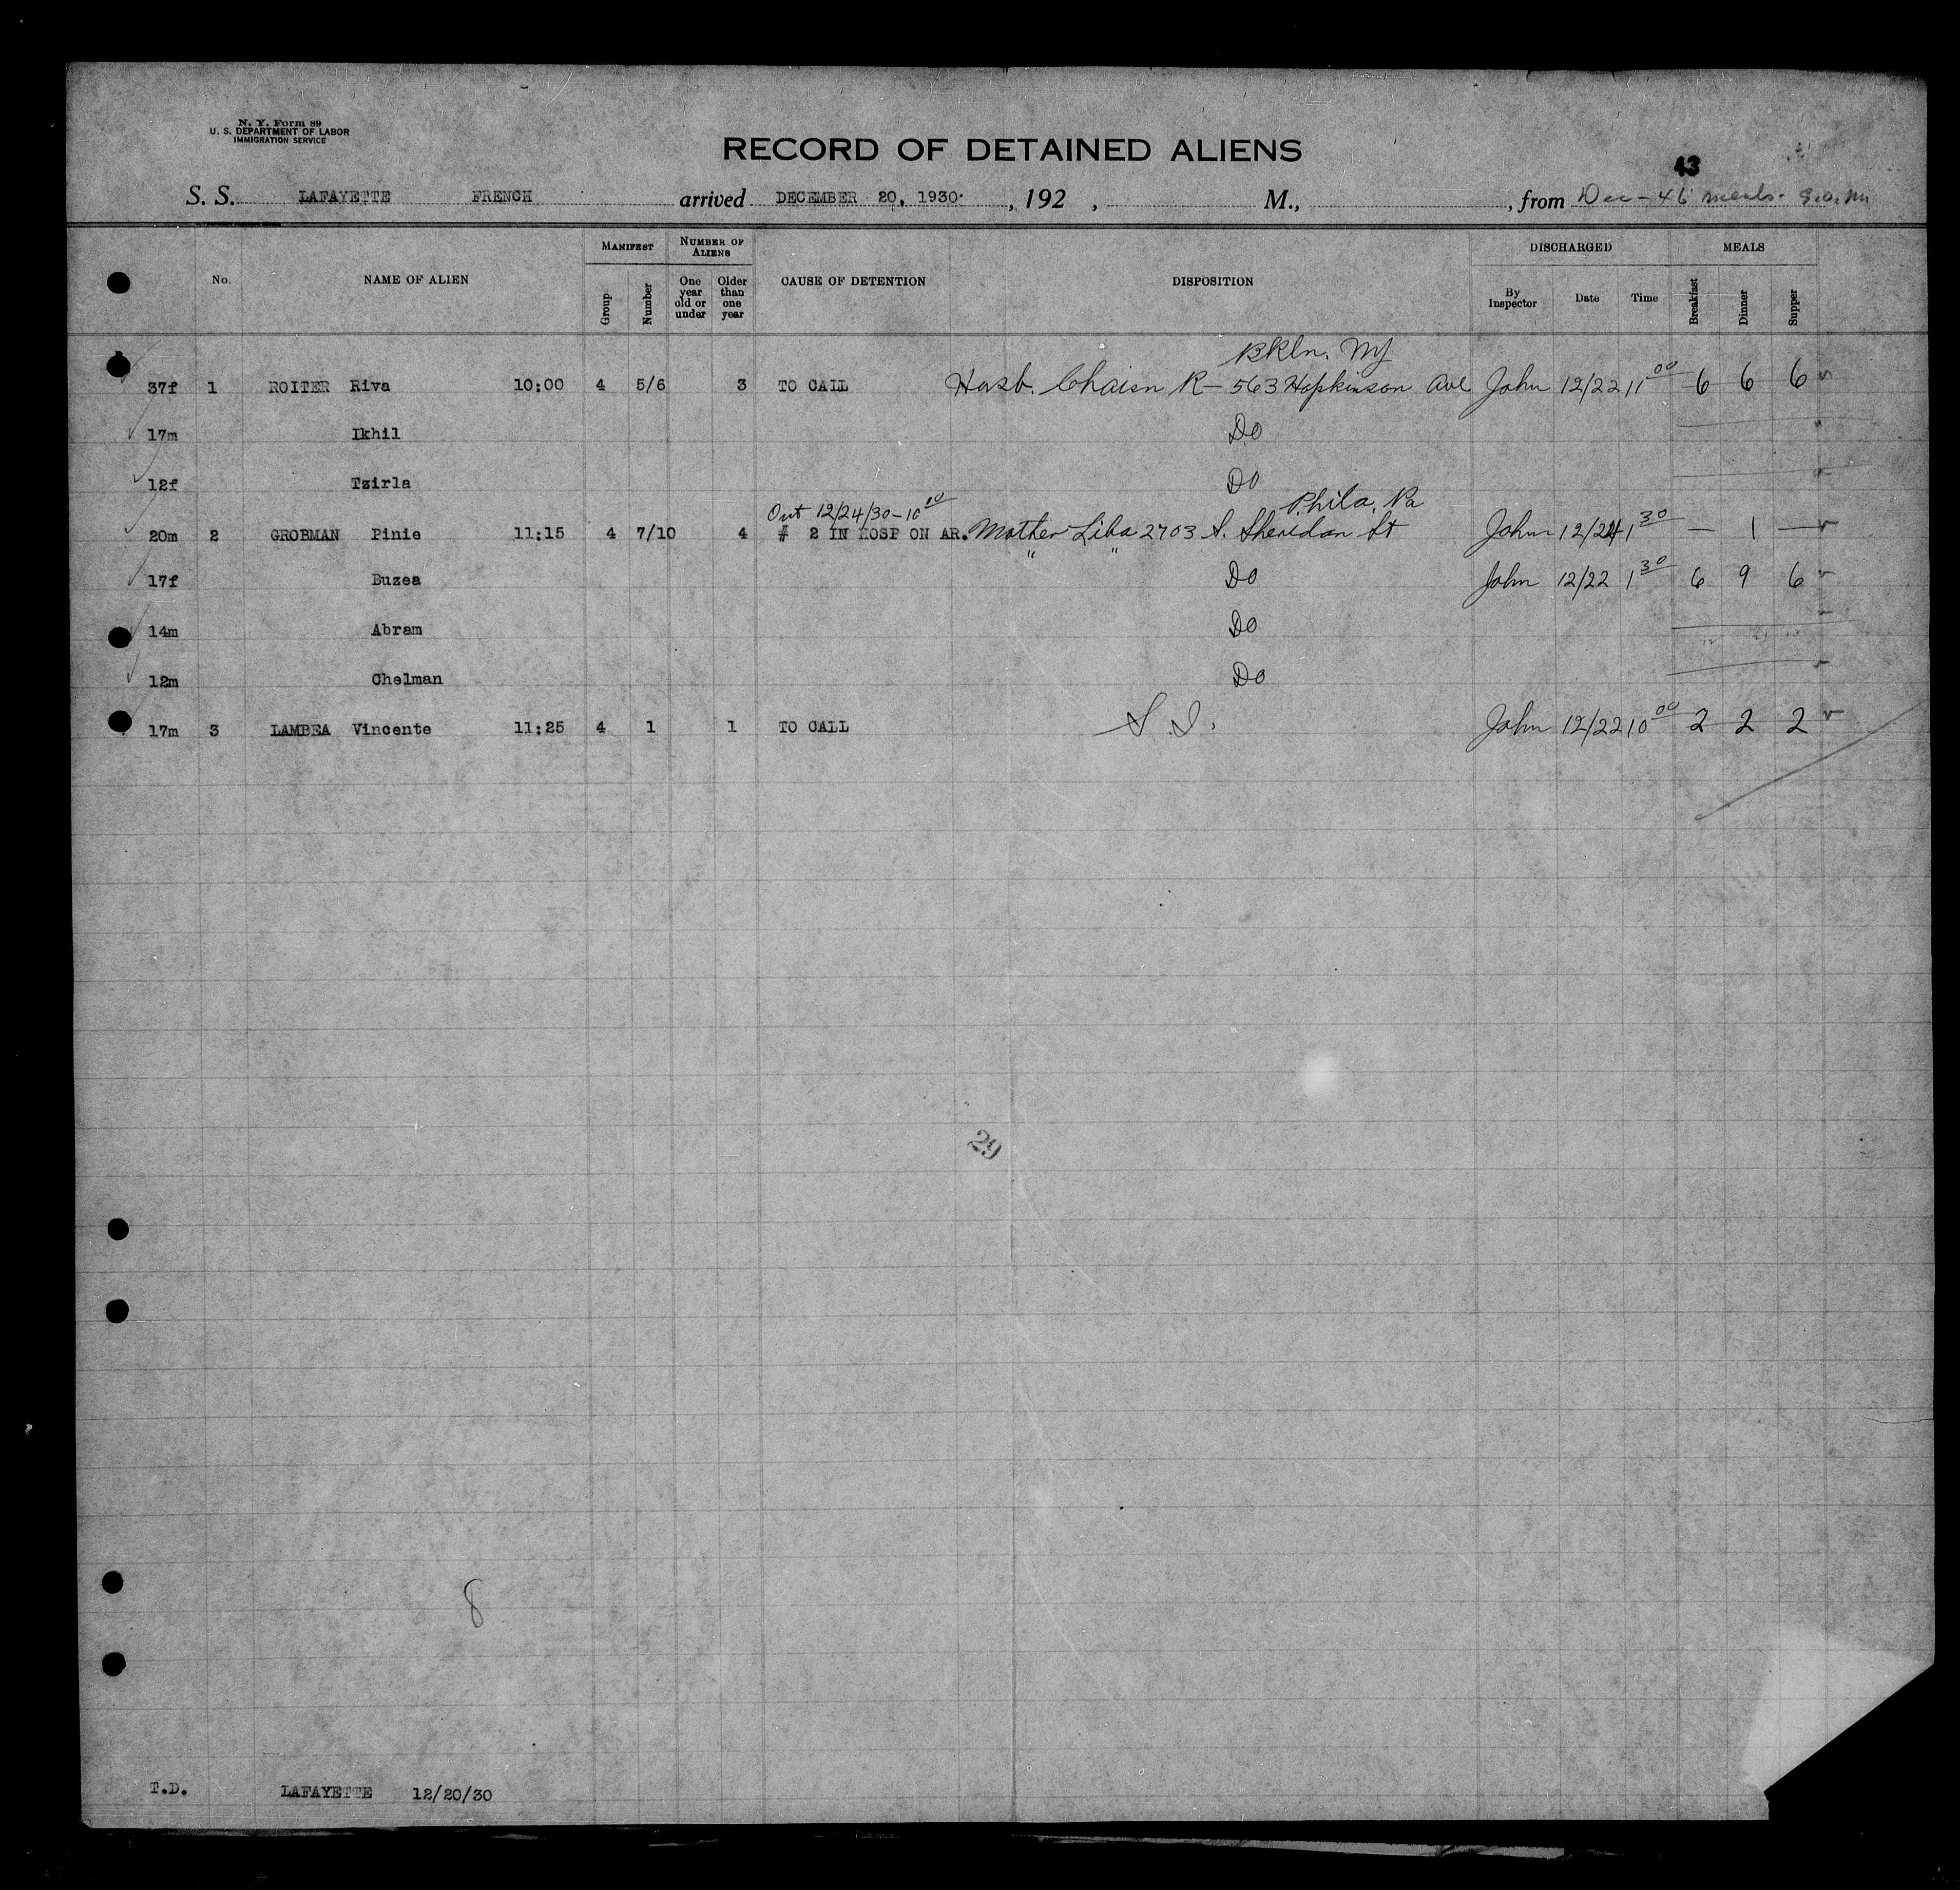 N. Y. Form 89
U. S. DEPARTMENT OF LABOR
IMMIGRATION SERVICE
RECORD OF DETAINED ALIENS
43
S. S. LAFAYETTE FRENCH arrived DECEMBER 20, 1930. , 192 , M., , from Dec - 46 meals.
No. NAME OF ALIEN MANIFEST Group Number NUMBER OF ALIENS One year old or under Older than one year CAUSE OF DETENTION DISPOSITION DISCHARGED By Inspector Date Time MEALS Breakfast Dinner Supper
Bkln. NY
37f 1 ROITER Riva 10:00 4 5/6 3 TO CALL Husb. Chaim R - 563 Hopkinson Ave John 12/22 11 00 6 6 6
17m Ikhil Do
12f Tzirla Do
Out 12/24/30 - 10 00 Phila, Pa
20m 2 GROBMAN Pinie 11:15 4 7/10 4 # 2 IN HOSP ON AR. Mother Liba 2703 S. Sheridan St John 12/24 1 30 — 1 —
" "
17f Buzea Do John 12/22 1 30 6 9 6
14m Abram Do
12m Chelman Do
17m 3 LAMBEA Vincente 11:25 4 1 1 TO CALL S. I. John 12/22 10 00 2 2 2
29
8
T.D. LAFAYETTE 12/20/30